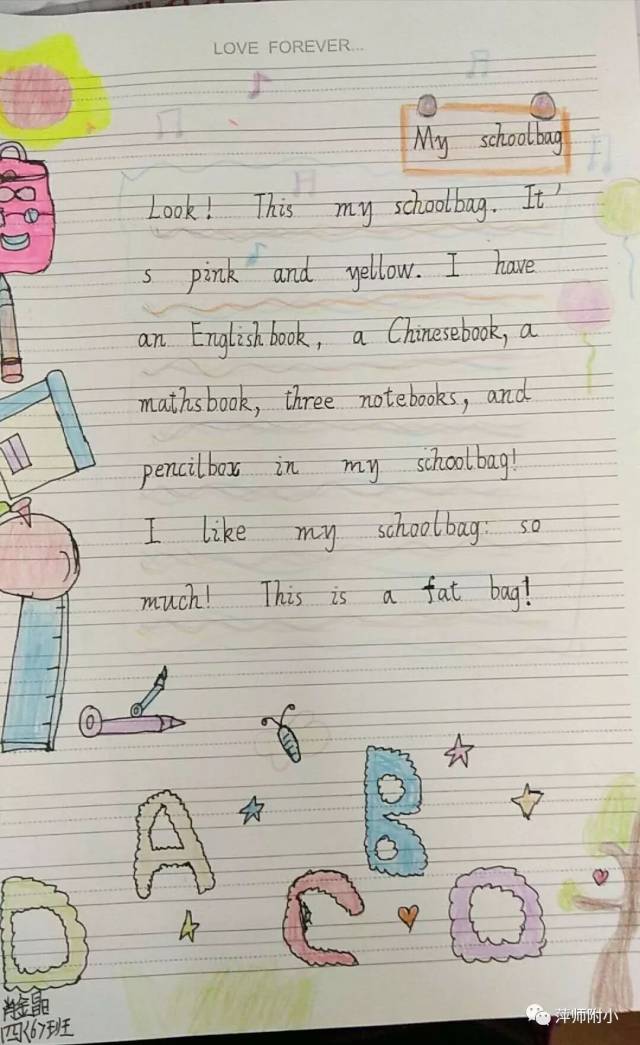 LOVE FOREVER...
My schoolbag
Look! This my schoolbag. It'
s pink and yellow. I have
an English book, a Chinesebook, a
mathsbook, three notebooks, and
pencilbox in my schoolbag!
I like my schoolbag: so
much! This is a fat bag!
A B
D C O
肖金晶
四<6>班
萍师附小